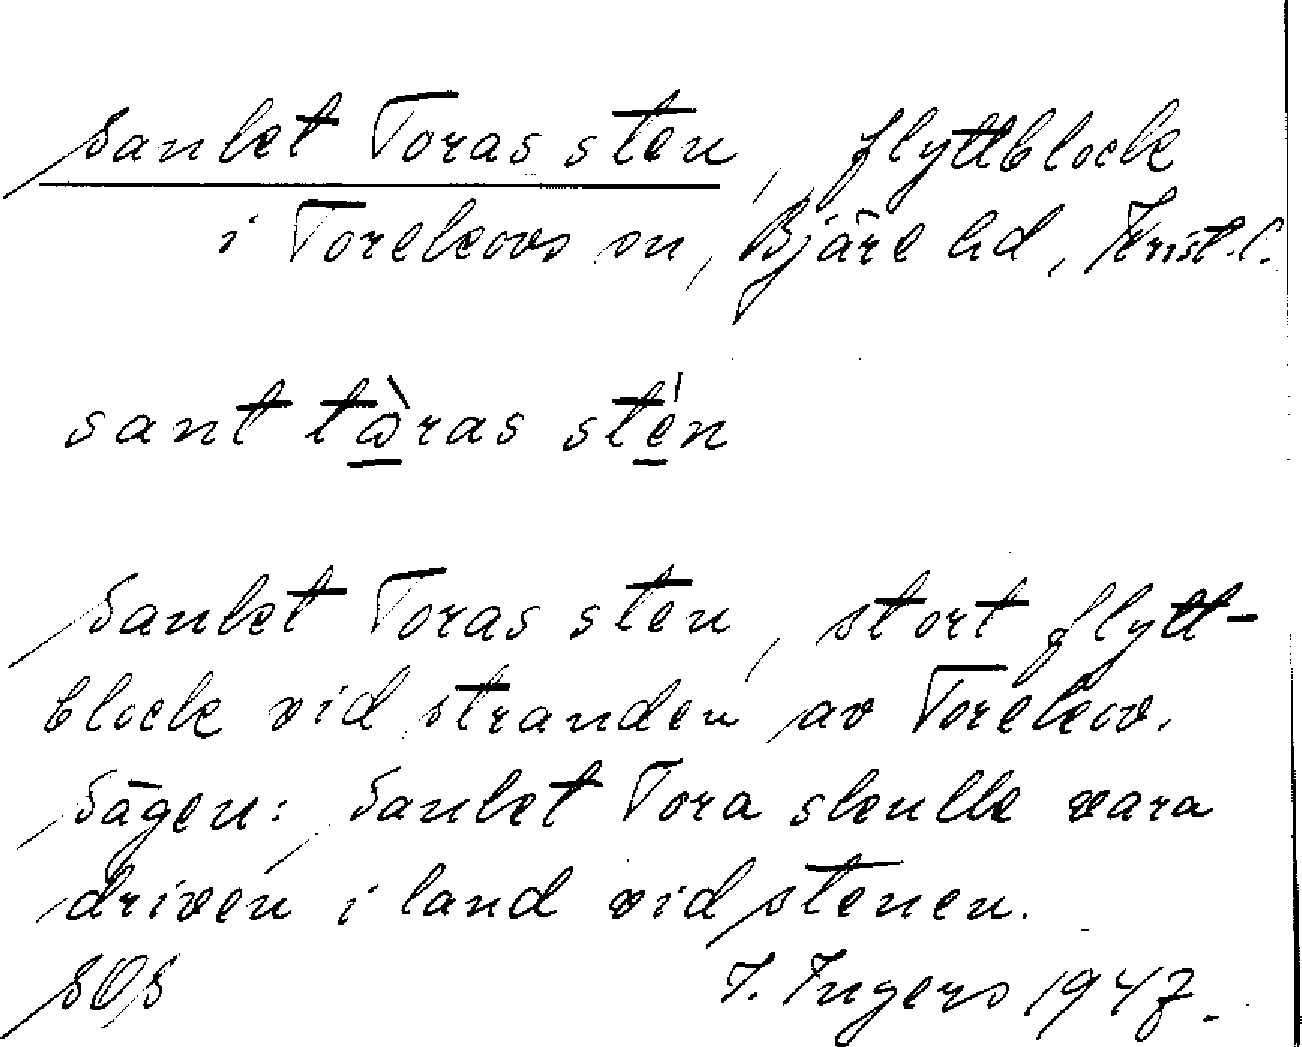 Sankt Toras sten, flyttblock
i Torekovs sn, Bjäre hd, Krist.l.
sant tò̱ras sté̱n
Sankt Toras sten, stort flytt-
block vid stranden av Torekov.
Sägen: Sankt Tora skulle vara
driven i land vid stenen.
SOS I. Ingers 1947.